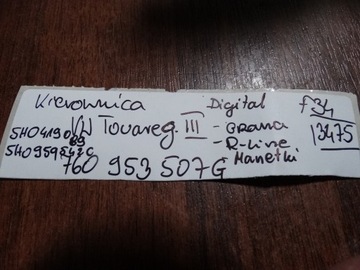 Kierownica
VW Touareg III
5H0419089
5H0959542C
760 953 507G
Digital
- Grana
- R-line
Manetki
f34
3475